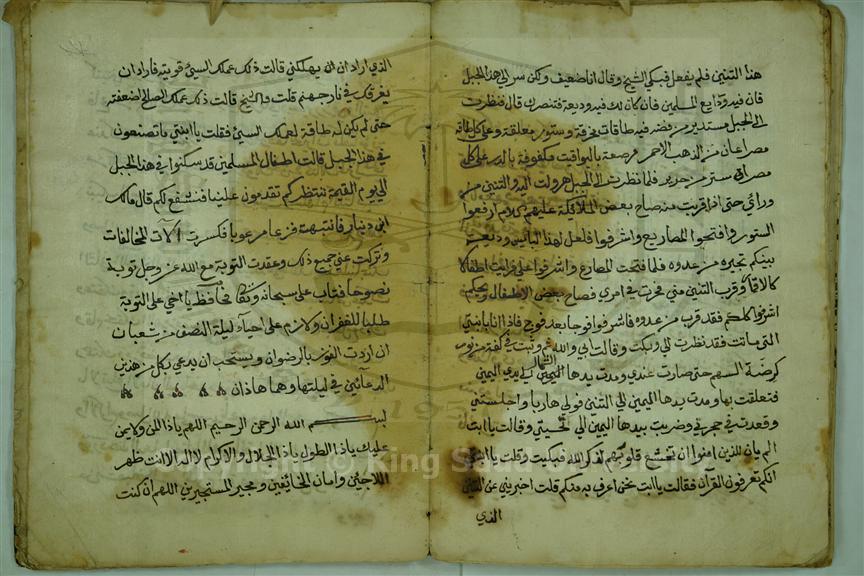 هذا التنين فلم يفعل فبكي الشيخ وقال انا ضعيف ولكن سر الي هذا الجبل
فان فيه ودايع المسلمين فان كان لك فيه وديعة فتنصرك قال فنظرت
الي الجبل مستدير من فضه فيه طاقات مخرقة وستور معلقة وعلي كل طاقه
مصراعان من الذهب الاحمر مرصعة باليواقيت مكفوفة بالدر علي كل
مصراع ستر من حرير فلما نظرت الي الجبل هرولت اليه والتنين من
ورائي حتى اذا قربت منه صاح بعض الملائكة عليهم كلام ارفعوا
الستور وافتحوا المصاريع واشرفوا فلعل لهذا البايس وديعة
بينكم تجيره من عدوه فلما فتحت المصارع واشرفوا علي فرايت اطفالا
كالاقمار وقرب التنين مني فحرت في امري فصاح بعض الاطفال ويحكم
اشرفوا كلكم فقد قرب من عدوه فاشرفوا فوجا بعد فوج فاذا انا بابنتي
التي ماتت فقد نظرت لي وبكت وقالت ابي والله ثم وثبت في كفة من نور
كرمية السهم حتى صارت عندي ومدت يدها الشمال الي يدي اليمين
فتعلقت بها ومدت يدها اليمين الي التنين فولي هاربا واجلستني
وقعدت في حجري وضربت بيدها اليمين الي لحيتي وقالت يا ابت
الم يان للذين امنوا ان تخشع قلوبهم لذكر الله فبكيت وقلت يا ابنتي
انكم تعرفون القرآن فقالت يا ابت نحن اعرف به منكم قلت اخبريني عن التنين
الذي
الذي اراد ان يهلكني قالت ذلك عملك السيئ قويته فاراد ان
يغرقك في نار جهنم قلت فالشيخ قالت ذلك عملك الصالح اضعفته
حتى لم يكن له طاقة لعملك السيئ فقلت يا ابنتي ما تصنعون
في هذا الجبل قالت اطفال المسلمين قد سكنوا في هذا الجبل
الي يوم القيمة ننتظركم تقدمون علينا فنشفع لكم قال مالك
ابن دينار فانتبهت فزعا مرعوبا فكسرت آلات المخالفات
وتركت عني جميع ذلك وعقدت التوبة مع الله عز وجل توبة
نصوحا فتاب علي سبحانه وتعالى فحافظ يا اخي علي التوبة
طلبا للغفران ولازم علي احياء ليلة النصف من شعبان
ان اردت الفوز بالرضوان ويستحب ان يدعي بكل من هذين
الدعائين في ليلتها وهما هاذان
بسم الله الرحمن الرحيم اللهم يا ذا المن ولا يمن
عليك يا ذا الطول يا ذا الجلال والاكرام لا اله الا انت ظهر
اللاجئين وامان الخائفين ومجير المستجيرين اللهم ان كنت